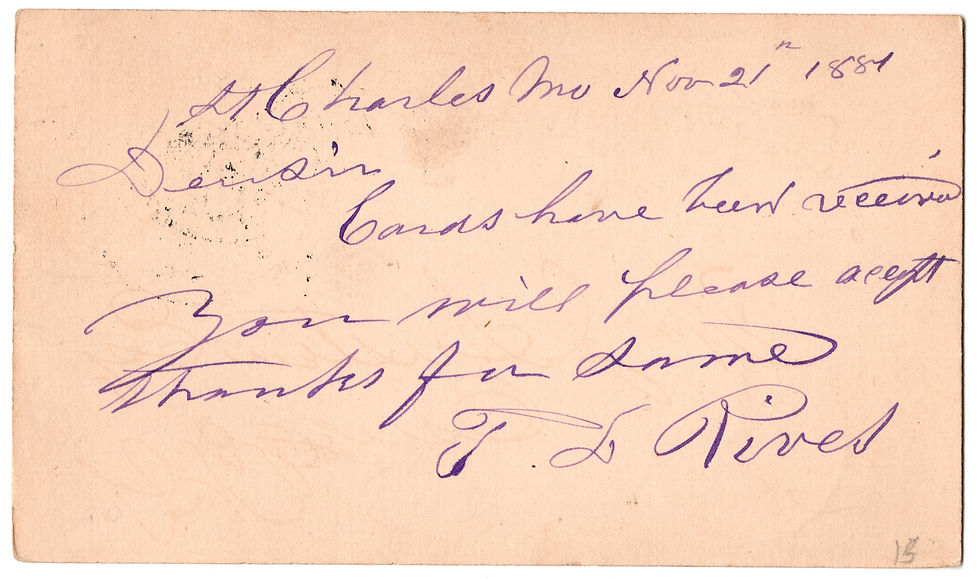 St Charles Mo Nov 21st 1881
Dear sir
Cards have been received
You will please accept
thanks for same
T L Rives
13